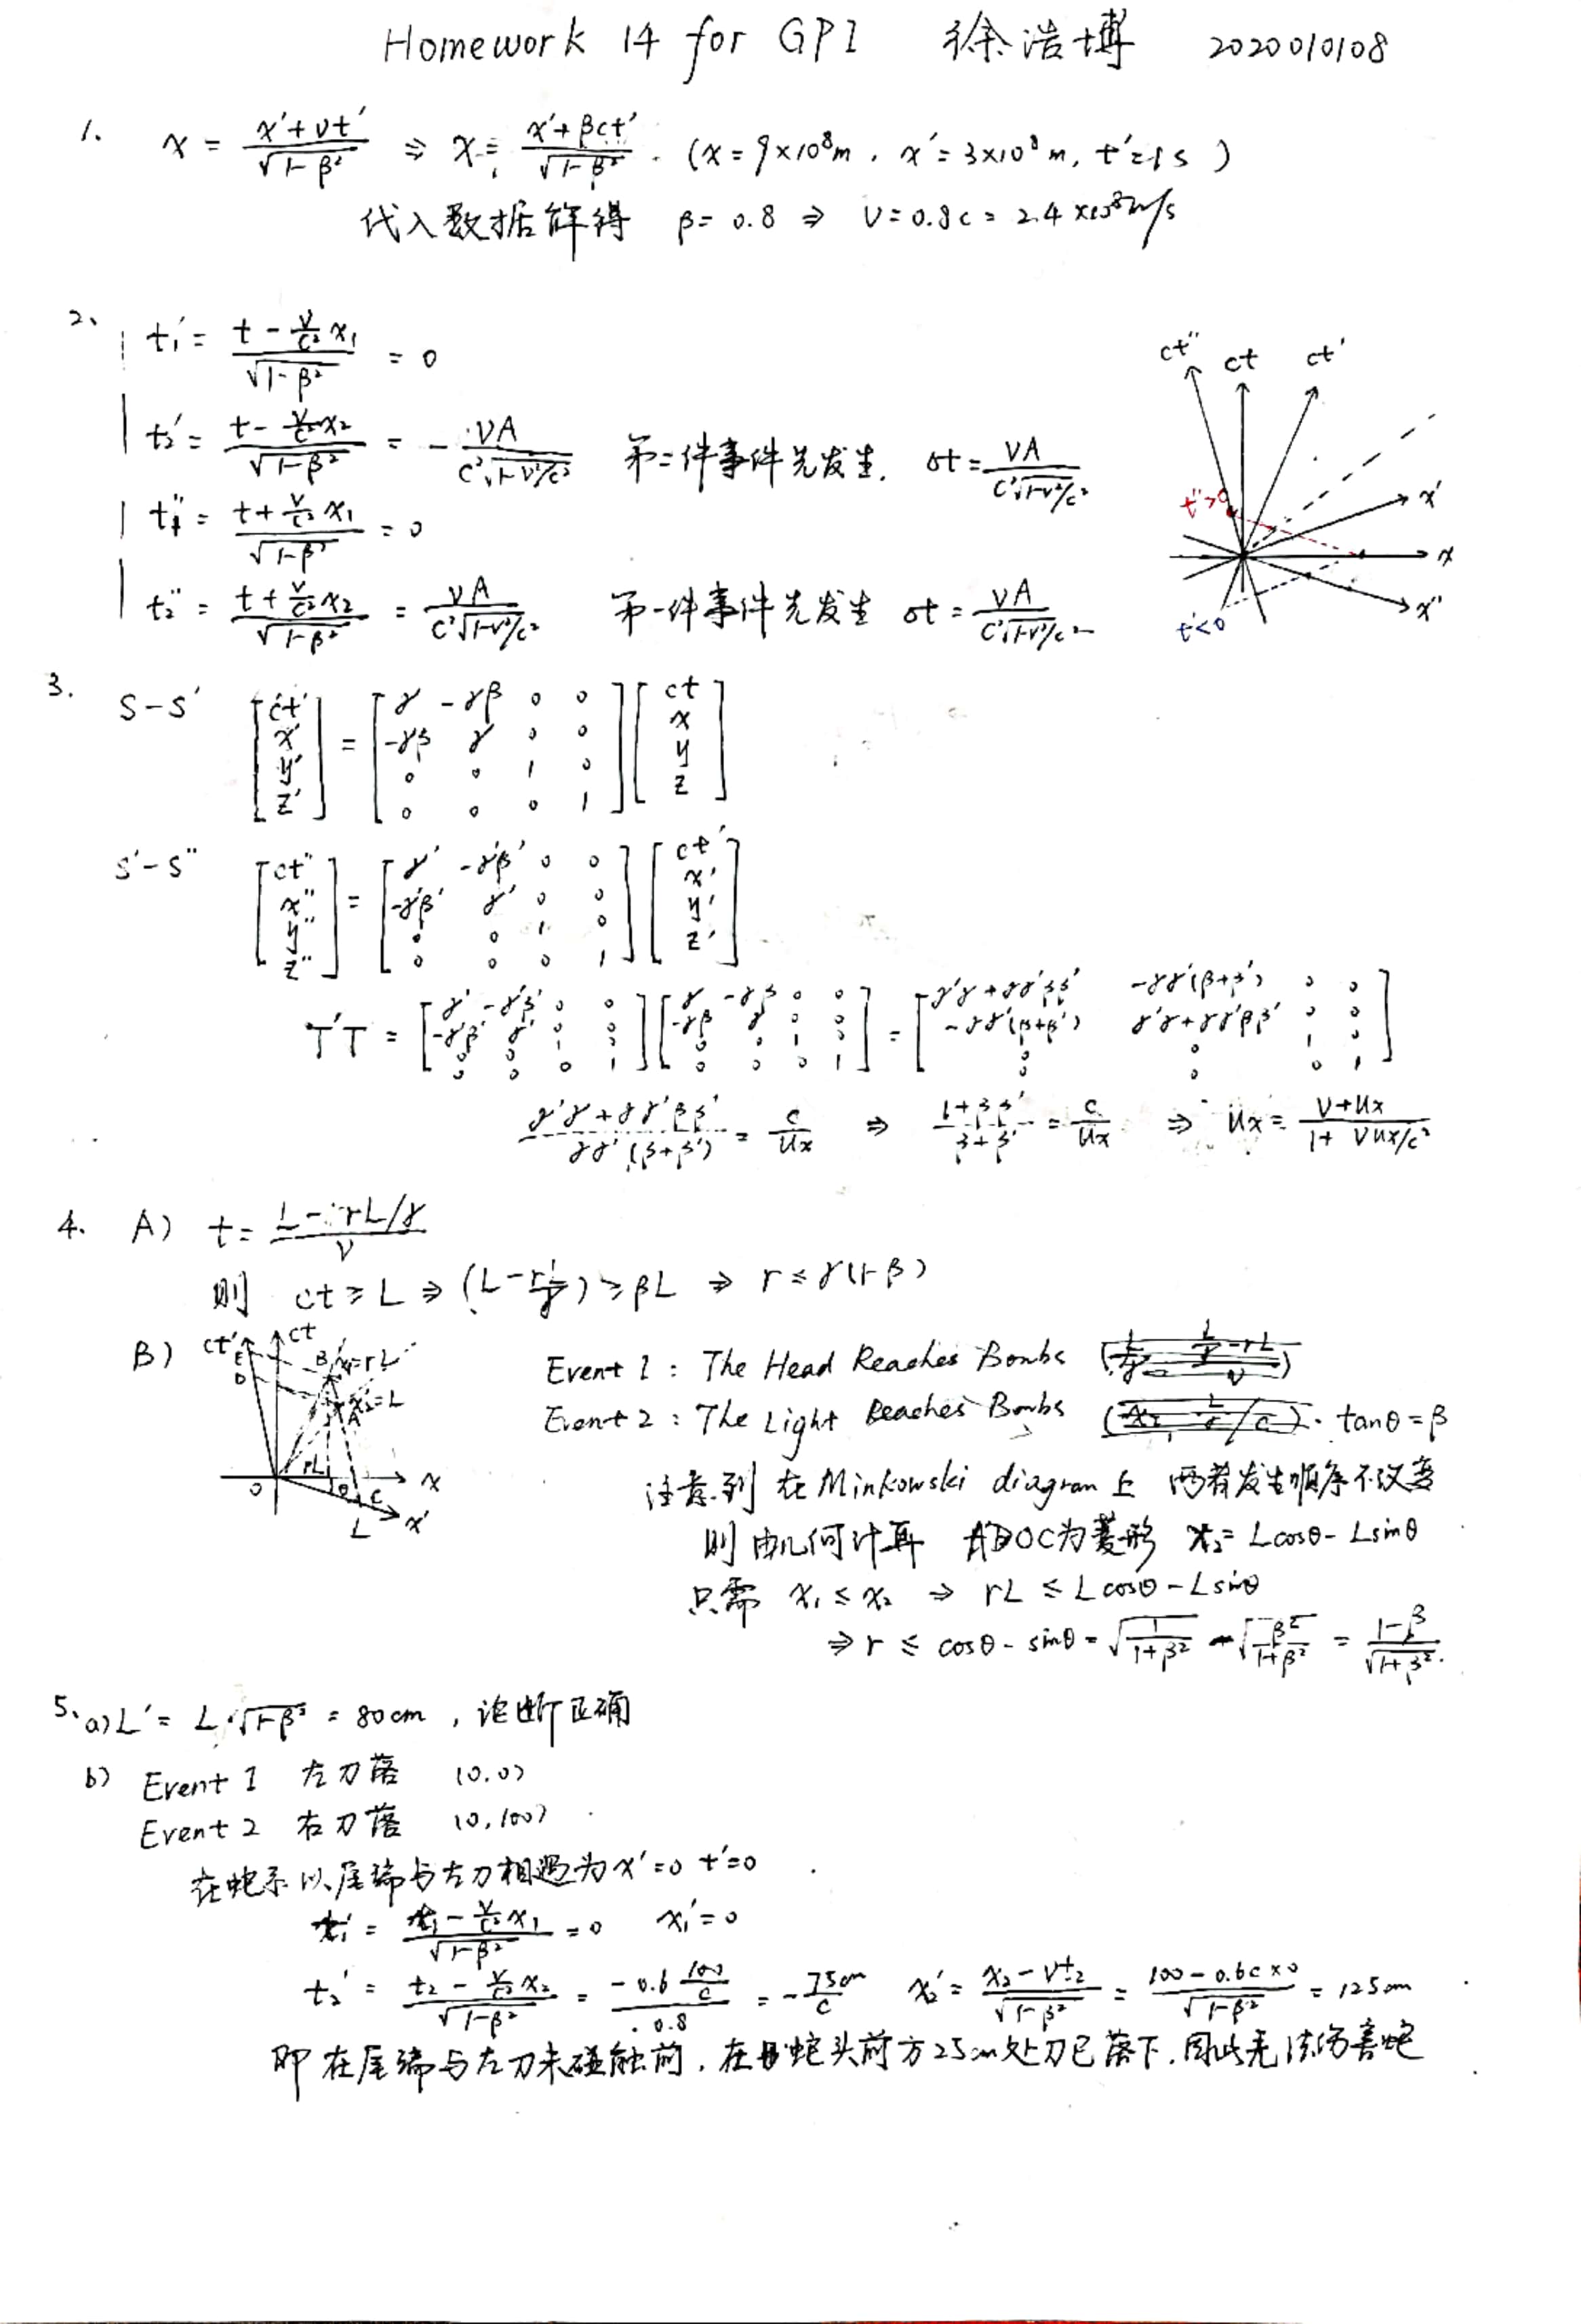 Homework 14 for GP1 徐浩博 2020010108
1. x = (x'+vt')/√(1-β²) ⇒ x = (x'+βct')/√(1-β²) . (x = 9×10⁸m , x' = 3×10⁸m, t'=1s )
代入数据解得 β= 0.8 ⇒ v=0.8c = 2.4×10⁸m/s
2、 t₁' = (t - v/c² x₁)/√(1-β²) = 0
t₂' = (t - v/c² x₂)/√(1-β²) = - vA/(c²√(1-v²/c²)) 第二件事件先发生. δt = vA/(c²√(1-v²/c²))
t₁'' = (t + v/c² x₁)/√(1-β²) = 0
t₂'' = (t + v/c² x₂)/√(1-β²) = vA/(c²√(1-v²/c²)) 第一件事件先发生 δt = vA/(c²√(1-v²/c²))
ct'' ct ct'
t''>0 x'
x
t'<0 x''
3. S-S' [ct' x' y' z'] = [γ -γβ 0 0; -γβ γ 0 0; 0 0 1 0; 0 0 0 1] [ct x y z]
S'-S'' [ct'' x'' y'' z''] = [γ' -γ'β' 0 0; -γ'β' γ' 0 0; 0 0 1 0; 0 0 0 1] [ct' x' y' z']
T'T = [γ' -γ'β' 0 0; -γ'β' γ' 0 0; 0 0 1 0; 0 0 0 1] [γ -γβ 0 0; -γβ γ 0 0; 0 0 1 0; 0 0 0 1] = [γ'γ+γγ'ββ' -γγ'(β+β') 0 0; -γγ'(β+β') γ'γ+γγ'ββ' 0 0; 0 0 1 0; 0 0 0 1]
(γ'γ+γγ'ββ')/(γγ'(β+β')) = c/ux ⇒ (1+ββ')/(β+β') = c/ux ⇒ ux = (v+ux)/(1+vux/c²)
4. A) t = (L - rL/γ)/v
则 ct ≥ L ⇒ (L - rL/γ) ≥ βL ⇒ r ≤ γ(1-β)
B) ct' ct
E B x₁=rL
D x₂=L
A
rL
O θ C x
L x'
Event 1 : The Head Reaches Bombs
Event 2 : The Light Reaches Bombs . tanθ = β
注意到 在 Minkowski diagram 上 两者发生顺序不改变
则 由几何计算 ABOC为菱形 x₂ = Lcosθ - Lsinθ
只需 x₁ ≤ x₂ ⇒ rL ≤ Lcosθ - Lsinθ
⇒ r ≤ cosθ - sinθ = √(1/(1+β²)) - √(β²/(1+β²)) = (1-β)/√(1+β²).
5、a) L' = L·√(1-β²) = 80cm , 论断正确
b) Event 1 左刀落 (0,0)
Event 2 右刀落 (0,100)
在蛇系以尾端与左刀相遇为 x'=0 t'=0
t₁' = (t₁ - v/c² x₁)/√(1-β²) = 0 x₁' = 0
t₂' = (t₂ - v/c² x₂)/√(1-β²) = (-0.6 100/c)/0.8 = - 75cm/c x₂' = (x₂ - vt₂)/√(1-β²) = (100 - 0.6c×0)/√(1-β²) = 125cm
即 在尾端与左刀未碰触前, 在蛇头前方25cm处刀已落下, 因此无法伤害蛇